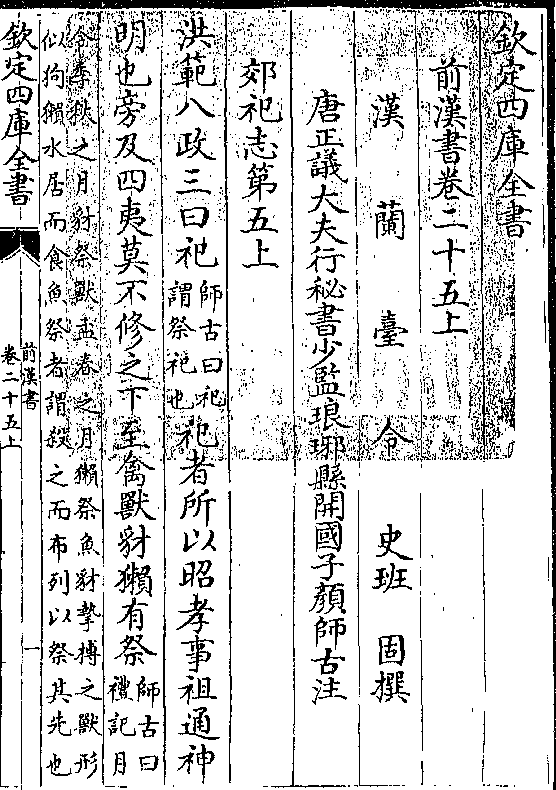 欽定四庫全書
前漢書卷二十五上
漢蘭臺令史班固撰
唐正議大夫行秘書少監琅琊縣開國子顏師古注
郊祀志第五上
洪範八政三曰祀師古曰祀謂祭祀也祀者所以昭孝事祖通神
明也旁及四夷莫不修之下至禽獸豺獺有祭師古曰禮記月
令季秋之月豺祭獸孟春之月獺祭魚豺摯搏之獸形
似狗獺水居而食魚祭者謂殺之而布列以祭其先也
欽定四庫全書
前漢書
卷二十五上
一